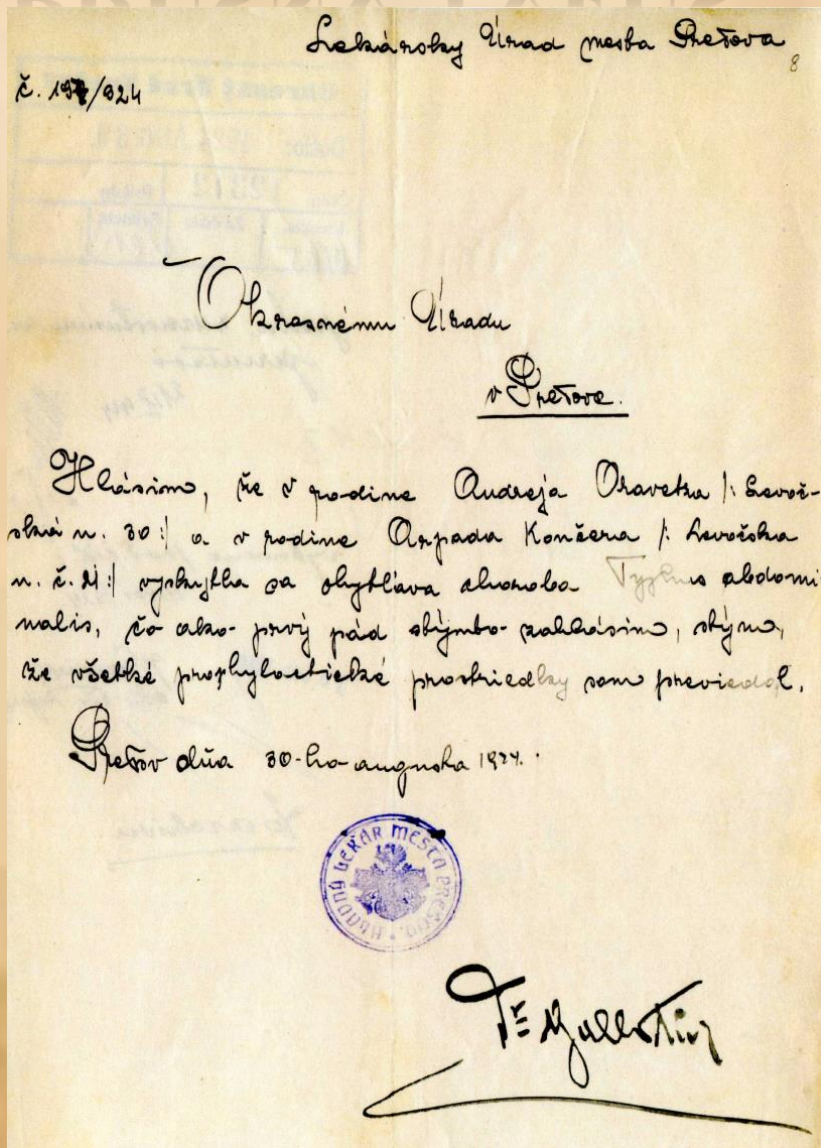 Lekársky Úrad mesta Prešova
8
č. 197/924
Okresnému Úradu
v Prešove.
Hlásim, že v rodine Andreja Oravetza /: Levoč-
ská u. 30 :/ a v rodine Arpada Končera /: Levočska
u. č. 21 :/ vyskytla sa chytľava choroba Typhus abdomi
nalis, čo ako prvý pád týmto zahlásim, stým,
že všetké prophylactické prostriedky som previedol.
Prešov dňa 30-ho augusta 1924.
HLAVNÝ LEKÁR MESTA PREŠOV.
Dr